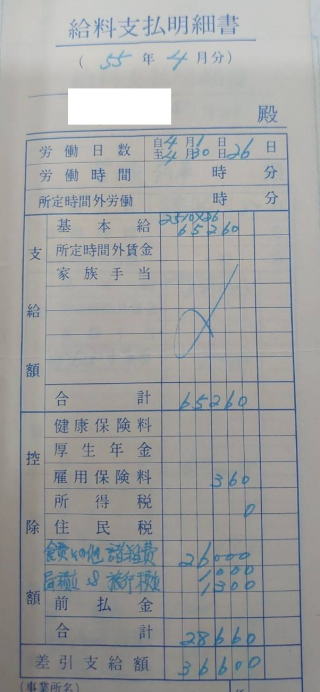 給料支払明細書
( 55 年 4 月分)
殿
労働日数 自 4 月 1 日 至 4 月 30 日 26 日
労働時間 時 分
所定時間外労働 時 分
支給額
2510×26
基本給 65260
所定時間外賃金
家族手当
合計 65260
控除額
健康保険料
厚生年金
雇用保険料 360
所得税 0
住民税
食費その他諸雑費 26000
1000
旅行積立 1300
前払金
合計 28660
差引支給額 36600
(事業所名)